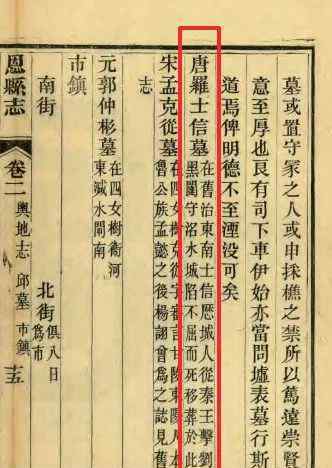 墓或置守冢之人或申採樵之禁所以篤遠崇賢
意至厚也良有司下車伊始亦當問墟表墓行斯
道焉俾明德不至湮没可矣
唐羅士信墓在舊治東南士信歷城人從秦王擊劉
黑闥守洺水城陷不屈而死移葬於此
宋孟克從墓在四女樹克從字審言甘陵東陽人本
魯公族孟懿之後楊詡曾爲之誌見舊
志
元郭仲彬墓在四女樹衛河
東減水閘南
市鎮
南街
北街俱八日
爲市
恩縣志
卷二
輿地志
邱墓
市鎮
十五